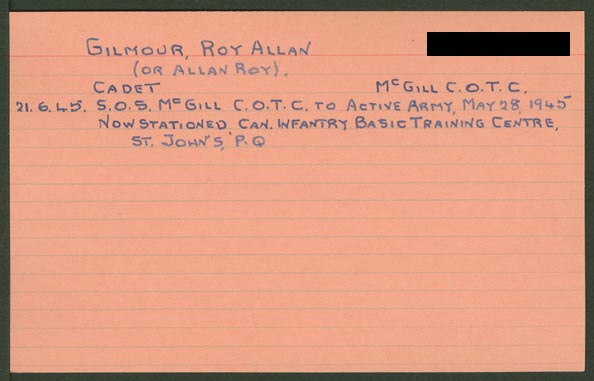 GILMOUR, ROY ALLAN
(OR ALLAN ROY).
CADET McGILL C.O.T.C.
21.6.45. S.O.S. McGILL C.O.T.C. TO ACTIVE ARMY, MAY 28, 1945
NOW STATIONED CAN. INFANTRY BASIC TRAINING CENTRE,
ST. JOHN'S, P.Q